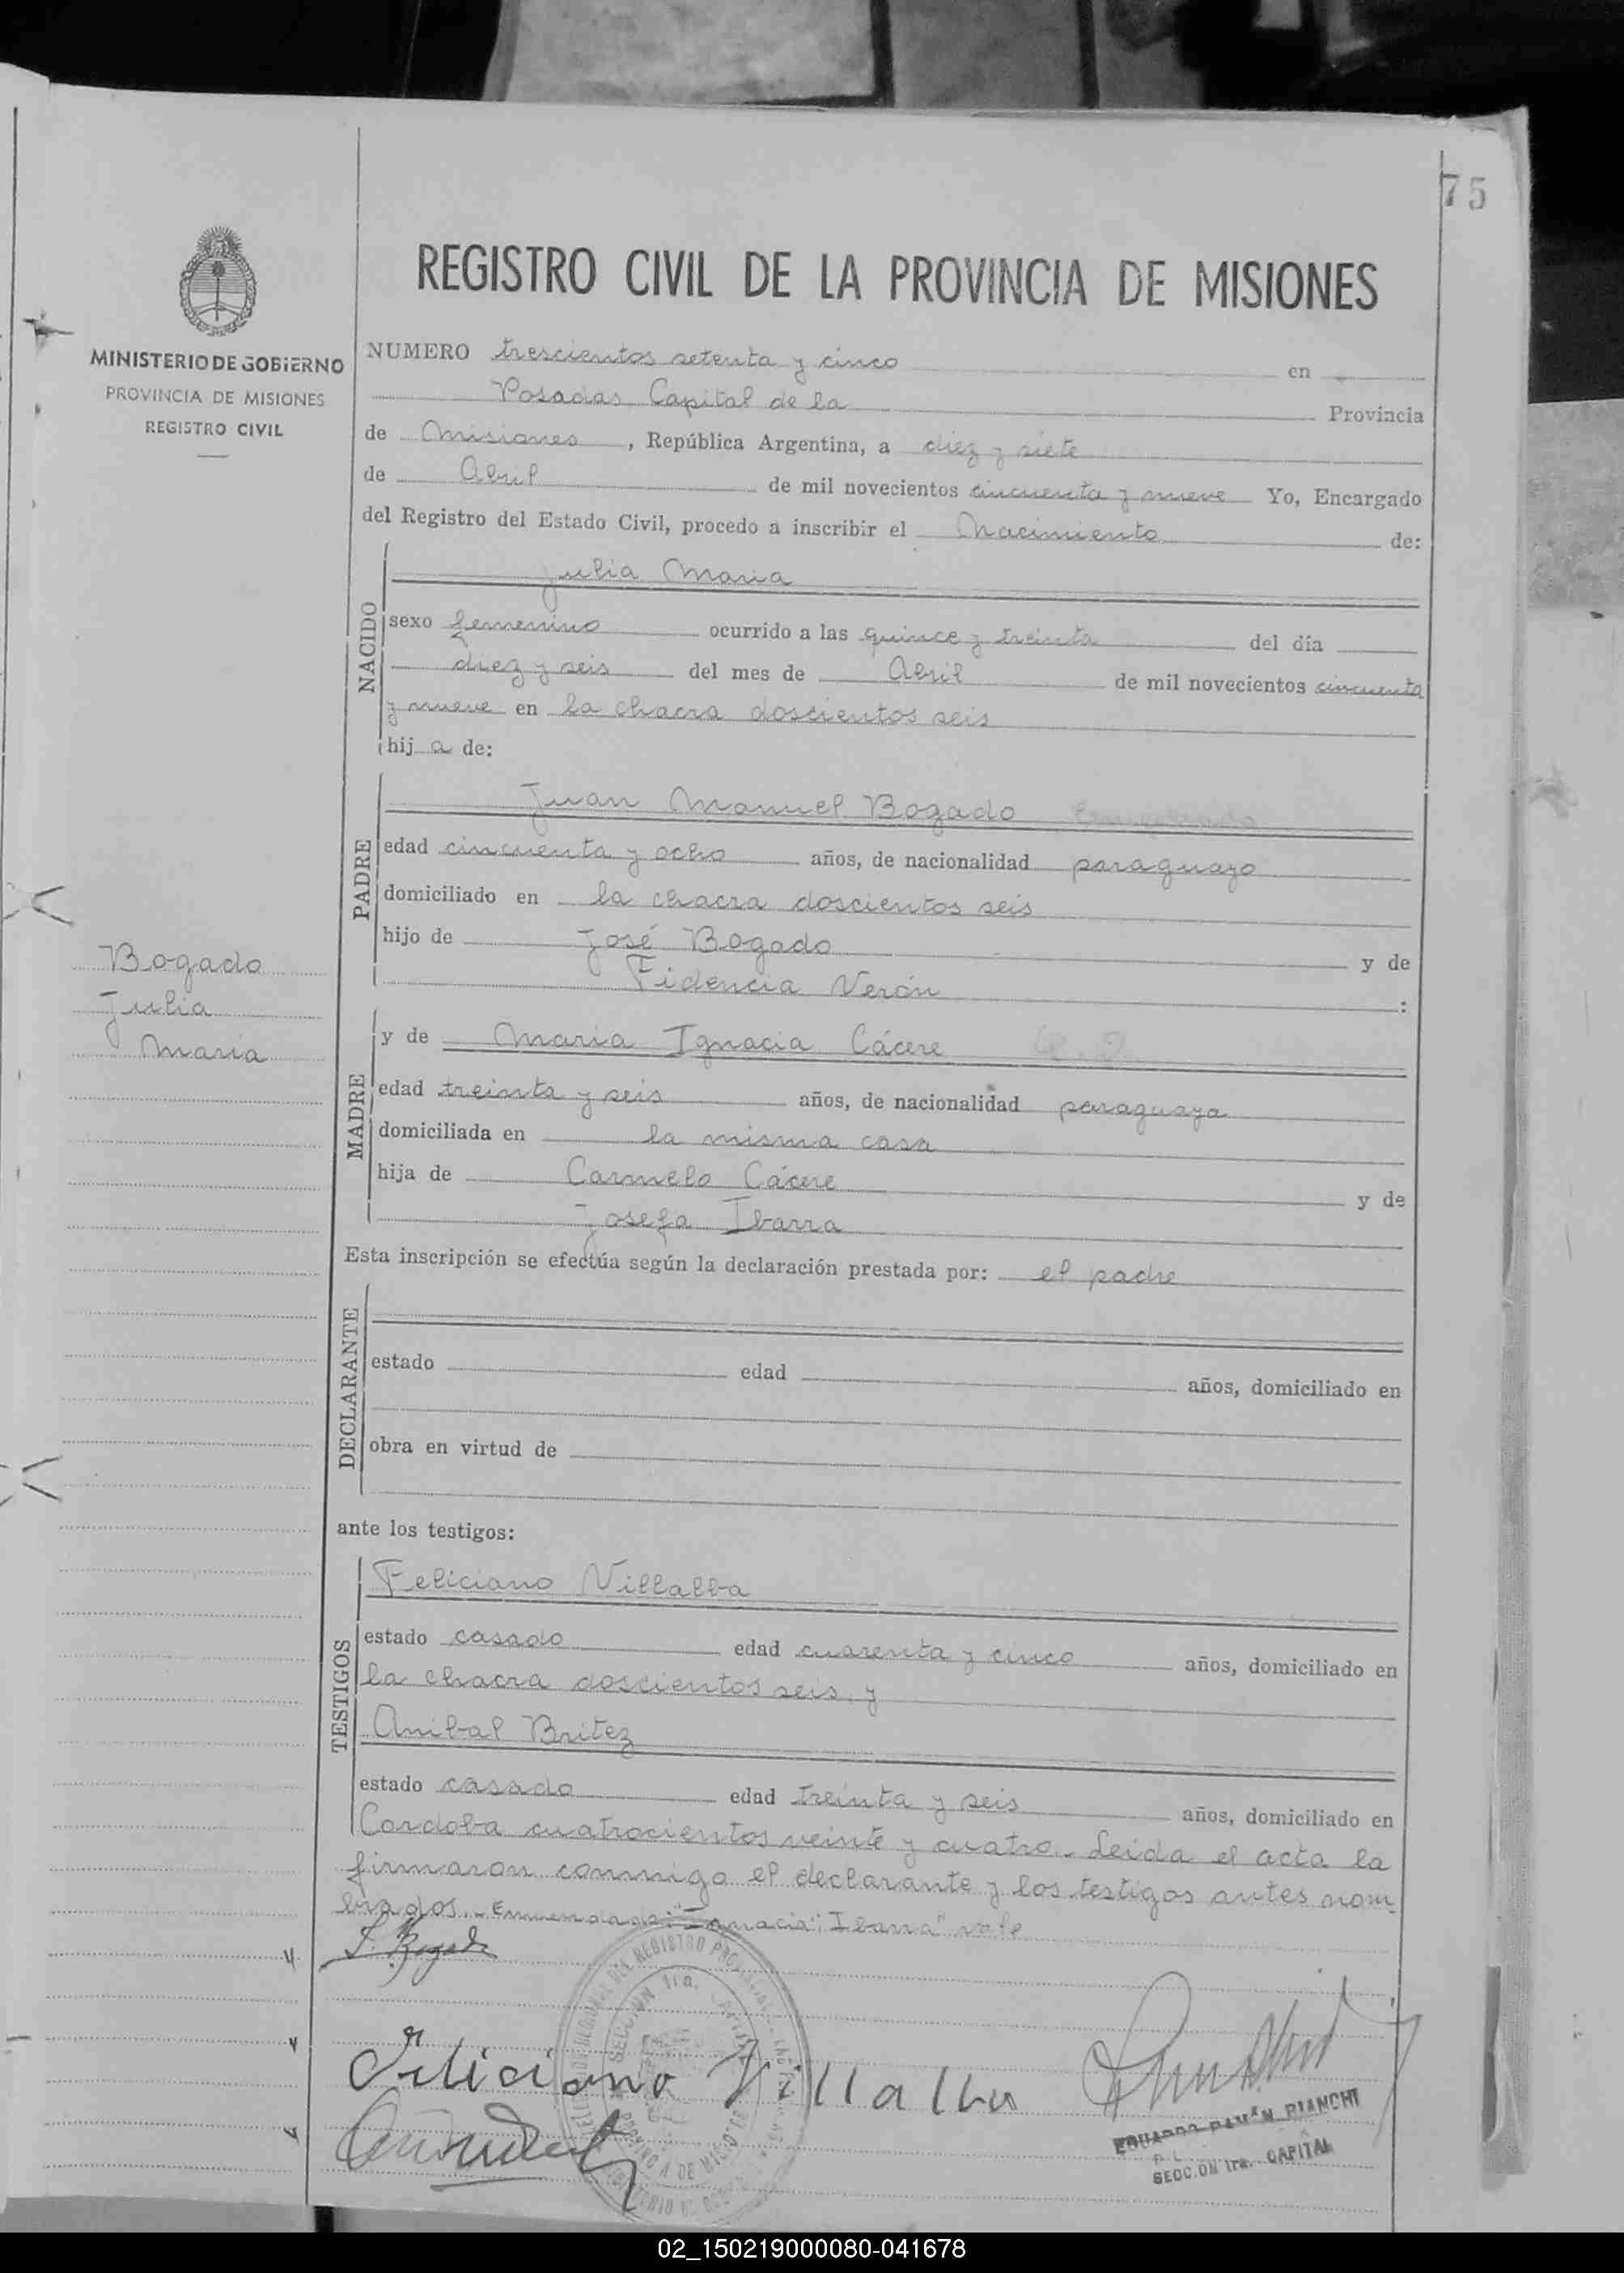 75
REGISTRO CIVIL DE LA PROVINCIA DE MISIONES
MINISTERIO DE GOBIERNO
PROVINCIA DE MISIONES
REGISTRO CIVIL
NUMERO trescientos setenta y cinco en
Posadas Capital de la Provincia
de Misiones, República Argentina, a diez y siete
de Abril de mil novecientos cincuenta y nueve Yo, Encargado
del Registro del Estado Civil, procedo a inscribir el Nacimiento de:
NACIDO
Julia Maria
sexo femenino ocurrido a las quince y treinta del día
diez y seis del mes de Abril de mil novecientos cincuenta
y nueve en la chacra doscientos seis
hija de:
PADRE
Juan Manuel Bogado
edad cincuenta y ocho años, de nacionalidad paraguayo
domiciliado en la chacra doscientos seis
hijo de José Bogado y de
Fidencia Verón :
Bogado
Julia
Maria
MADRE
y de Maria Ignacia Cácere
edad treinta y seis años, de nacionalidad paraguaya
domiciliada en la misma casa
hija de Carmelo Cácere y de
Josefa Ibarra
Esta inscripción se efectúa según la declaración prestada por: el padre
DECLARANTE
estado edad años, domiciliado en
obra en virtud de
ante los testigos:
TESTIGOS
Feliciano Villalba
estado casado edad cuarenta y cinco años, domiciliado en
la chacra doscientos seis, y
Anibal Britez
estado casado edad treinta y seis años, domiciliado en
Cordoba cuatrocientos veinte y cuatro. Leida el acta la
firmaron conmigo el declarante y los testigos antes nom
brados. Enmendado: "Ignacia"; Ibarra" vale
J. Bogado
Feliciano Villalba
EDUARDO RAMÓN BIANCHI
SECCION 1ra. CAPITAL
02_150219000080-041678